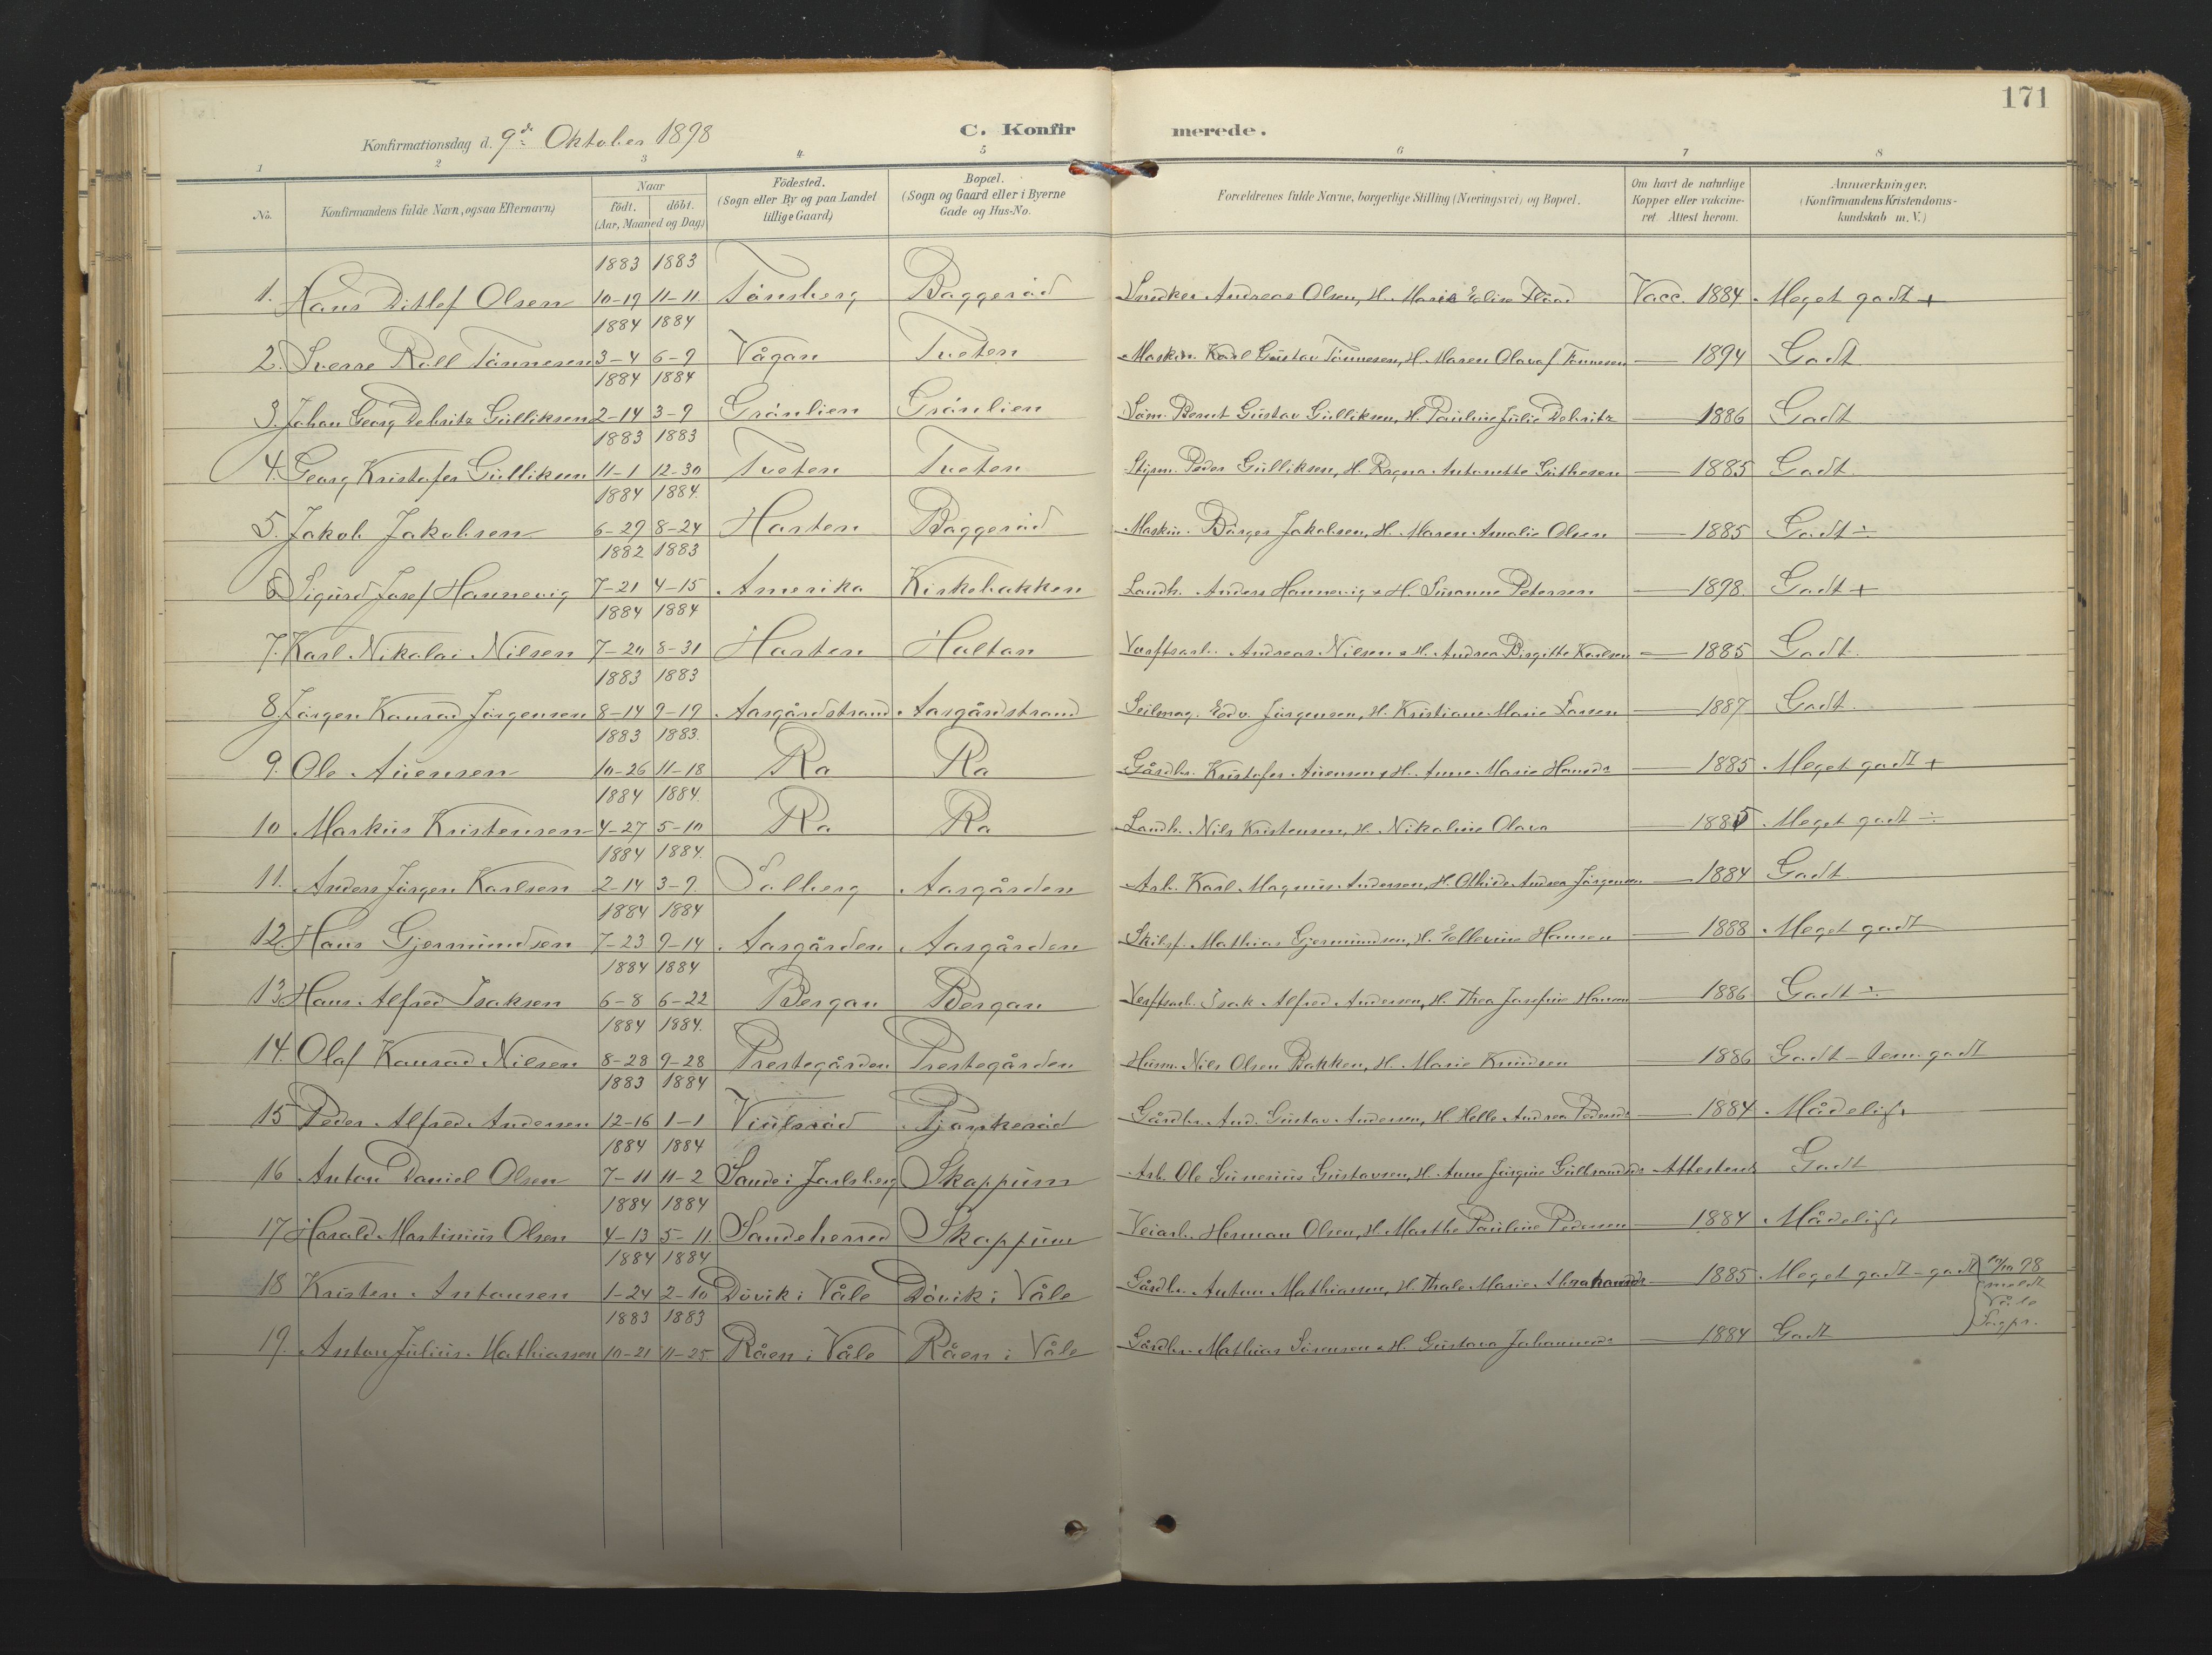 171
Konfirmationsdag d. 9de Oktober 1898
C. Konfirmerede.
1 2 3 4. 5 6 7 8
No.
Konfirmandens fulde Navn, ogsaa Efternavn)
Naar
födt. döbt.
(Aar, Maaned og Dag)
Födested.
(Sogn eller By og paa Landet
tillige Gaard)
Bopæl.
(Sogn og Gaard eller i Byerne
Gade og Hus-No.
Forældrenes fulde Navne, borgerlige Stilling (Næringsvei) og Bopæl.
Om havt de naturlige
Kopper eller vakcine-
ret. Attest herom.
Anmærkninger.
(Konfirmandens Kristendoms-
kundskab m. V.)
1883 1883
1. Hans Ditlef Olsen 10-19 11-11 Tönsberg Baggeröd Snedker Andreas Olsen, H. Marie Elise Vacc. 1884 Meget godt +
1884 1884
2. Sverre Roll Tönnesen 3-4 6-9 Vågan Tveten Maskin. Karl Gustav Tönnesen, H. Maren Olava f. Tönnesen — 1894 Godt
1884 1884
3. Johan Georg Debritz Gulliksen 2-14 3-9 Grönlien Grönlien Söm. Bernt Gustav Gulliksen, H. Pauline Julie Debritz — 1886 Godt
1883 1883
4. Georg Kristofer Gulliksen 11-1 12-30 Tveten Tveten Styrm. Peder Gulliksen, H. Ragna Antonette Guthesen — 1885 Godt
1884 1884.
5. Jakob Jakobsen 6-29 8-24 Horten Baggeröd Maskin. Börger Jakobsen, H. Maren Amalie Olsen — 1885 Godt ÷
1882 1883
6 Sigurd Josef Hannevig 7-21 4-15 Amerika Kirkebakken Landh. Anders Hannevig & H. Susanne Petersen — 1898. Godt +
1884 1884
7. Karl Nikolai Nilsen 7-20 8-31 Horten Holtan Verftsarb. Andreas Nilsen & H. Andrea Birgitte Karlsen — 1885 Godt.
1883 1883
8. Jörgen Konrad Jörgensen 8-14 9-19 Aasgårdstrand Aasgårdstrand Seilmag. Edv. Jörgensen, H. Kristiane Marie Larsen — 1887 Godt.
1883 1883.
9. Ole Auensen 10-26 11-18 Ra Ra Gårdbr. Kristofer Auensen & H. Anne Marie Hansdr — 1885 Meget godt +
1884 1884.
10 Markus Kristensen 4-27 5-10 Ra Ra Landh. Nils Kristensen, H. Nikoline Olava — 1885 Meget godt ÷
1884 1884.
11. Anders Jörgen Karlsen 2-14 3-9 Solberg Aasgården Arb. Karl Magnus Andersen, H. Othide Andrea Jörgensen — 1884 Godt
1884 1884
12. Hans Gjermundsen 7-23 9-14 Aasgården Aasgården Skibsf. Mathias Gjermundsen, H. Ellevine Hansen — 1888 Meget godt
1884 1884
13. Hans Alfred Isaksen 6-8 6-22 Bergan Bergan Verftsarb. Isak Alfred Andersen, H. Thea Josefine Hansen — 1886 Godt ÷
1884 1884.
14. Olaf Konrad Nilsen 8-28 9-28 Prestegården Prestegården Husm. Nils Olsen Bakken, H. Marie Knudsen — 1886 Godt - tem. godt
1883 1884
15 Peder Alfred Andersen 12-16 1-1 Viulsröd Bjørkeröd Gårdbr. And. Gustav Andersen, H. Helle Andrea Pedersdr — 1884 Mådeligt
1884 1884
16 Anton Daniel Olsen 7-11 11-2 Sande i Jarlsberg Skoppum Arb. Ole Gunerius Gustavsen, H. Anne Jörgine Gulbrandsdr Attesterdr Godt
1884 1884
17 Harald Martinius Olsen 4-13 5-11 Sandeherred Skoppum Veiarb. Herman Olsen, H. Marthe Pauline Pedersen — 1884 Mådeligt
1884 1884
18 Kristen Antonsen 1-24 2-10 Dövik i Våle Dövik i Våle Gårdbr. Anton Mathiassen, H. Thale Marie Abrahamsdr — 1885 Meget godt - godt
10/10 98
meldt
Våle
Sogpr.
1883 1883
19. Anton Julius Mathiassen 10-21 11-25 Råen i Våle Råen i Våle Gårdbr. Mathias Sörensen & H. Gustava Johannesdr — 1884 Godt